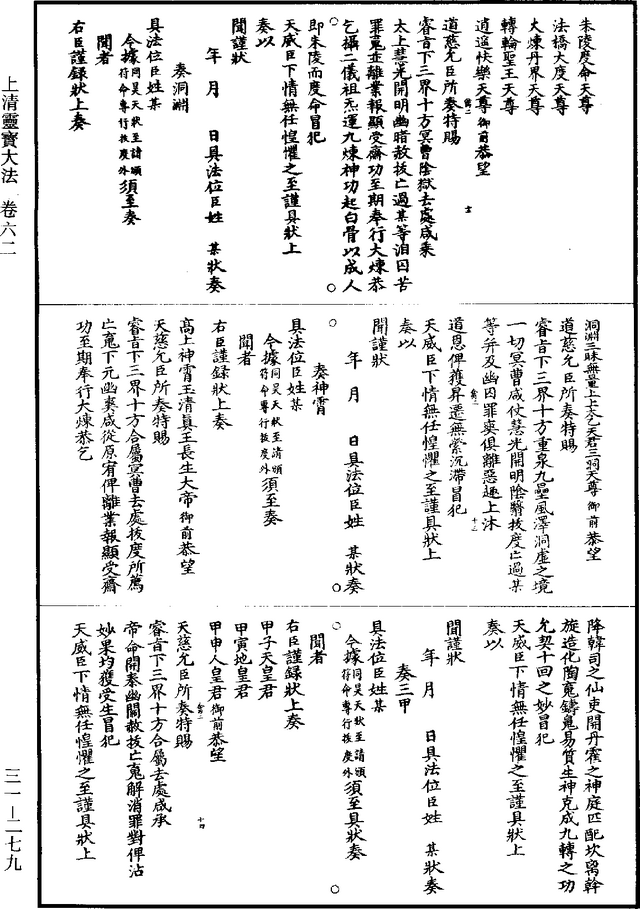 上清靈寶大法 卷六二
朱陵度命天尊
法橋大度天尊
大煉丹界天尊
轉輪聖王天尊
逍遙快樂天尊御前恭望
道慈允臣所奏特賜
睿旨下三界十方冥曹陰獄去處咸乘
太上慧光開明幽暗赦拔亡過某等洎囚苦
罪䰟並離業報顯受齋功至期奉行大煉恭
乞攝二儀祖炁運九煉神功起白骨以成人
即朱陵而度命冒犯
天威臣下情無任惶懼之至謹具狀上
奏以
聞謹狀
年 月 日具法位臣姓 某狀奏
奏洞淵
具法位臣姓某
令據同昊天狀至請頒符命專行拔度外須至奏
聞者
右臣謹録狀上奏
洞淵三昧無量上士太乙天君三洞天尊御前恭望
道慈允臣所奏特賜
睿旨下三界十方重泉九壘風澤洞虛之境
一切冥曹咸仗慧光開明陰翳拔度亡過某
等并及幽囚罪爽俱離惡趣上沐
道恩俾獲昇遷無縈沉滯冒犯
天威臣下情無任惶懼之至謹具狀上
奏以
聞謹狀
年 月 日具法位臣姓 某狀奏
奏神霄
具法位臣姓某
令據同昊天狀至請頒符命專行拔度外須至奏
聞者
右臣謹録狀上奏
高上神霄玉清真王長生大帝御前恭望
天慈允臣所奏特賜
睿旨下三界十方合屬冥曹去處拔度所薦
亡䰟下元幽爽咸從原宥俾離業報顯受齋
功至期奉行大煉恭乞
降韓司之仙吏開丹霍之神庭匹配坎离斡
旋造化陶䰟鑄鬼易質生神克成九轉之功
允契十回之妙冒犯
天威臣下情無任惶懼之至謹具狀上
奏以
聞謹狀
年 月 日具法位臣姓 某狀奏
奏三甲
具法位臣姓某
令據同昊天狀至請頒符命專行拔度外須至具狀奏
聞者
右臣謹録狀上奏
甲子天皇君
甲寅地皇君
甲申人皇君御前恭望
天慈允臣所奏特賜
睿旨下三界十方合屬去處咸承
帝命開泰幽關赦拔亡䰟解消罪對俾沾
妙果均獲受生冒犯
天威臣下情無任惶懼之至謹具狀上
三一—二七九